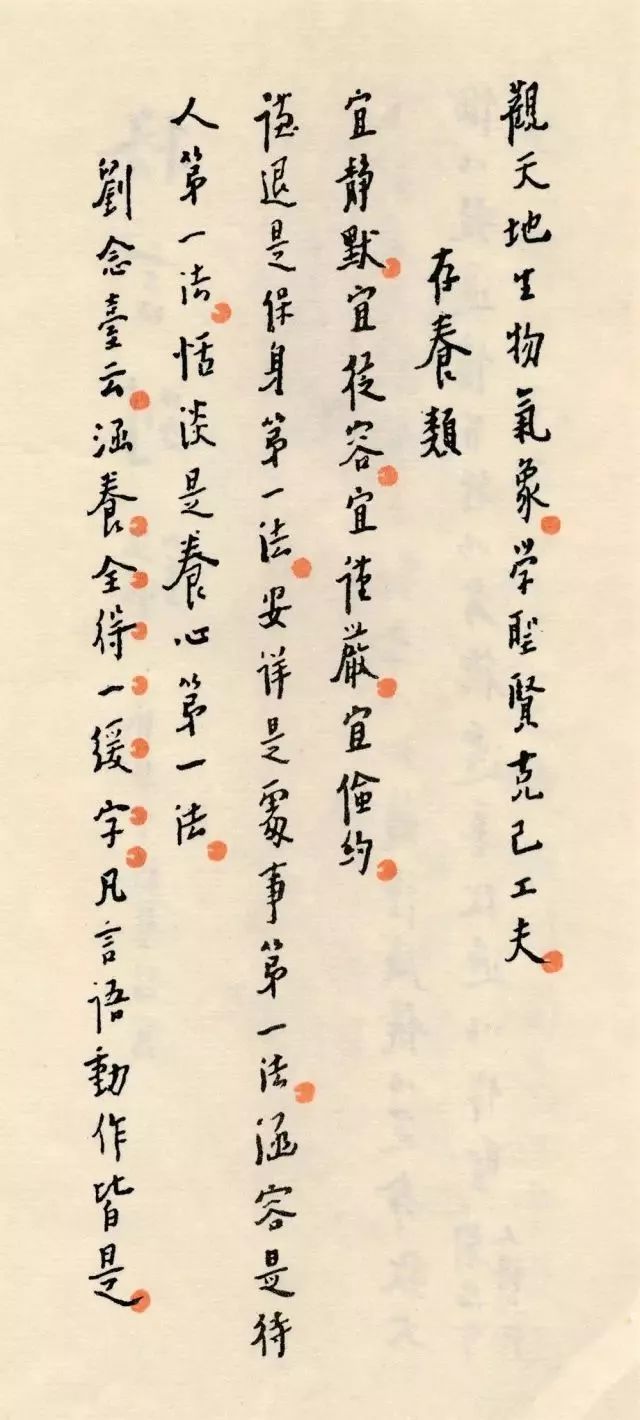 觀天地生物氣象学聖賢克己工夫
存養類
宜靜默宜從容宜謹嚴宜儉約
謙退是保身第一法安详是處事第一法涵容是待
人第一法恬淡是養心第一法
劉念臺云涵養全得一緩字凡言語動作皆是